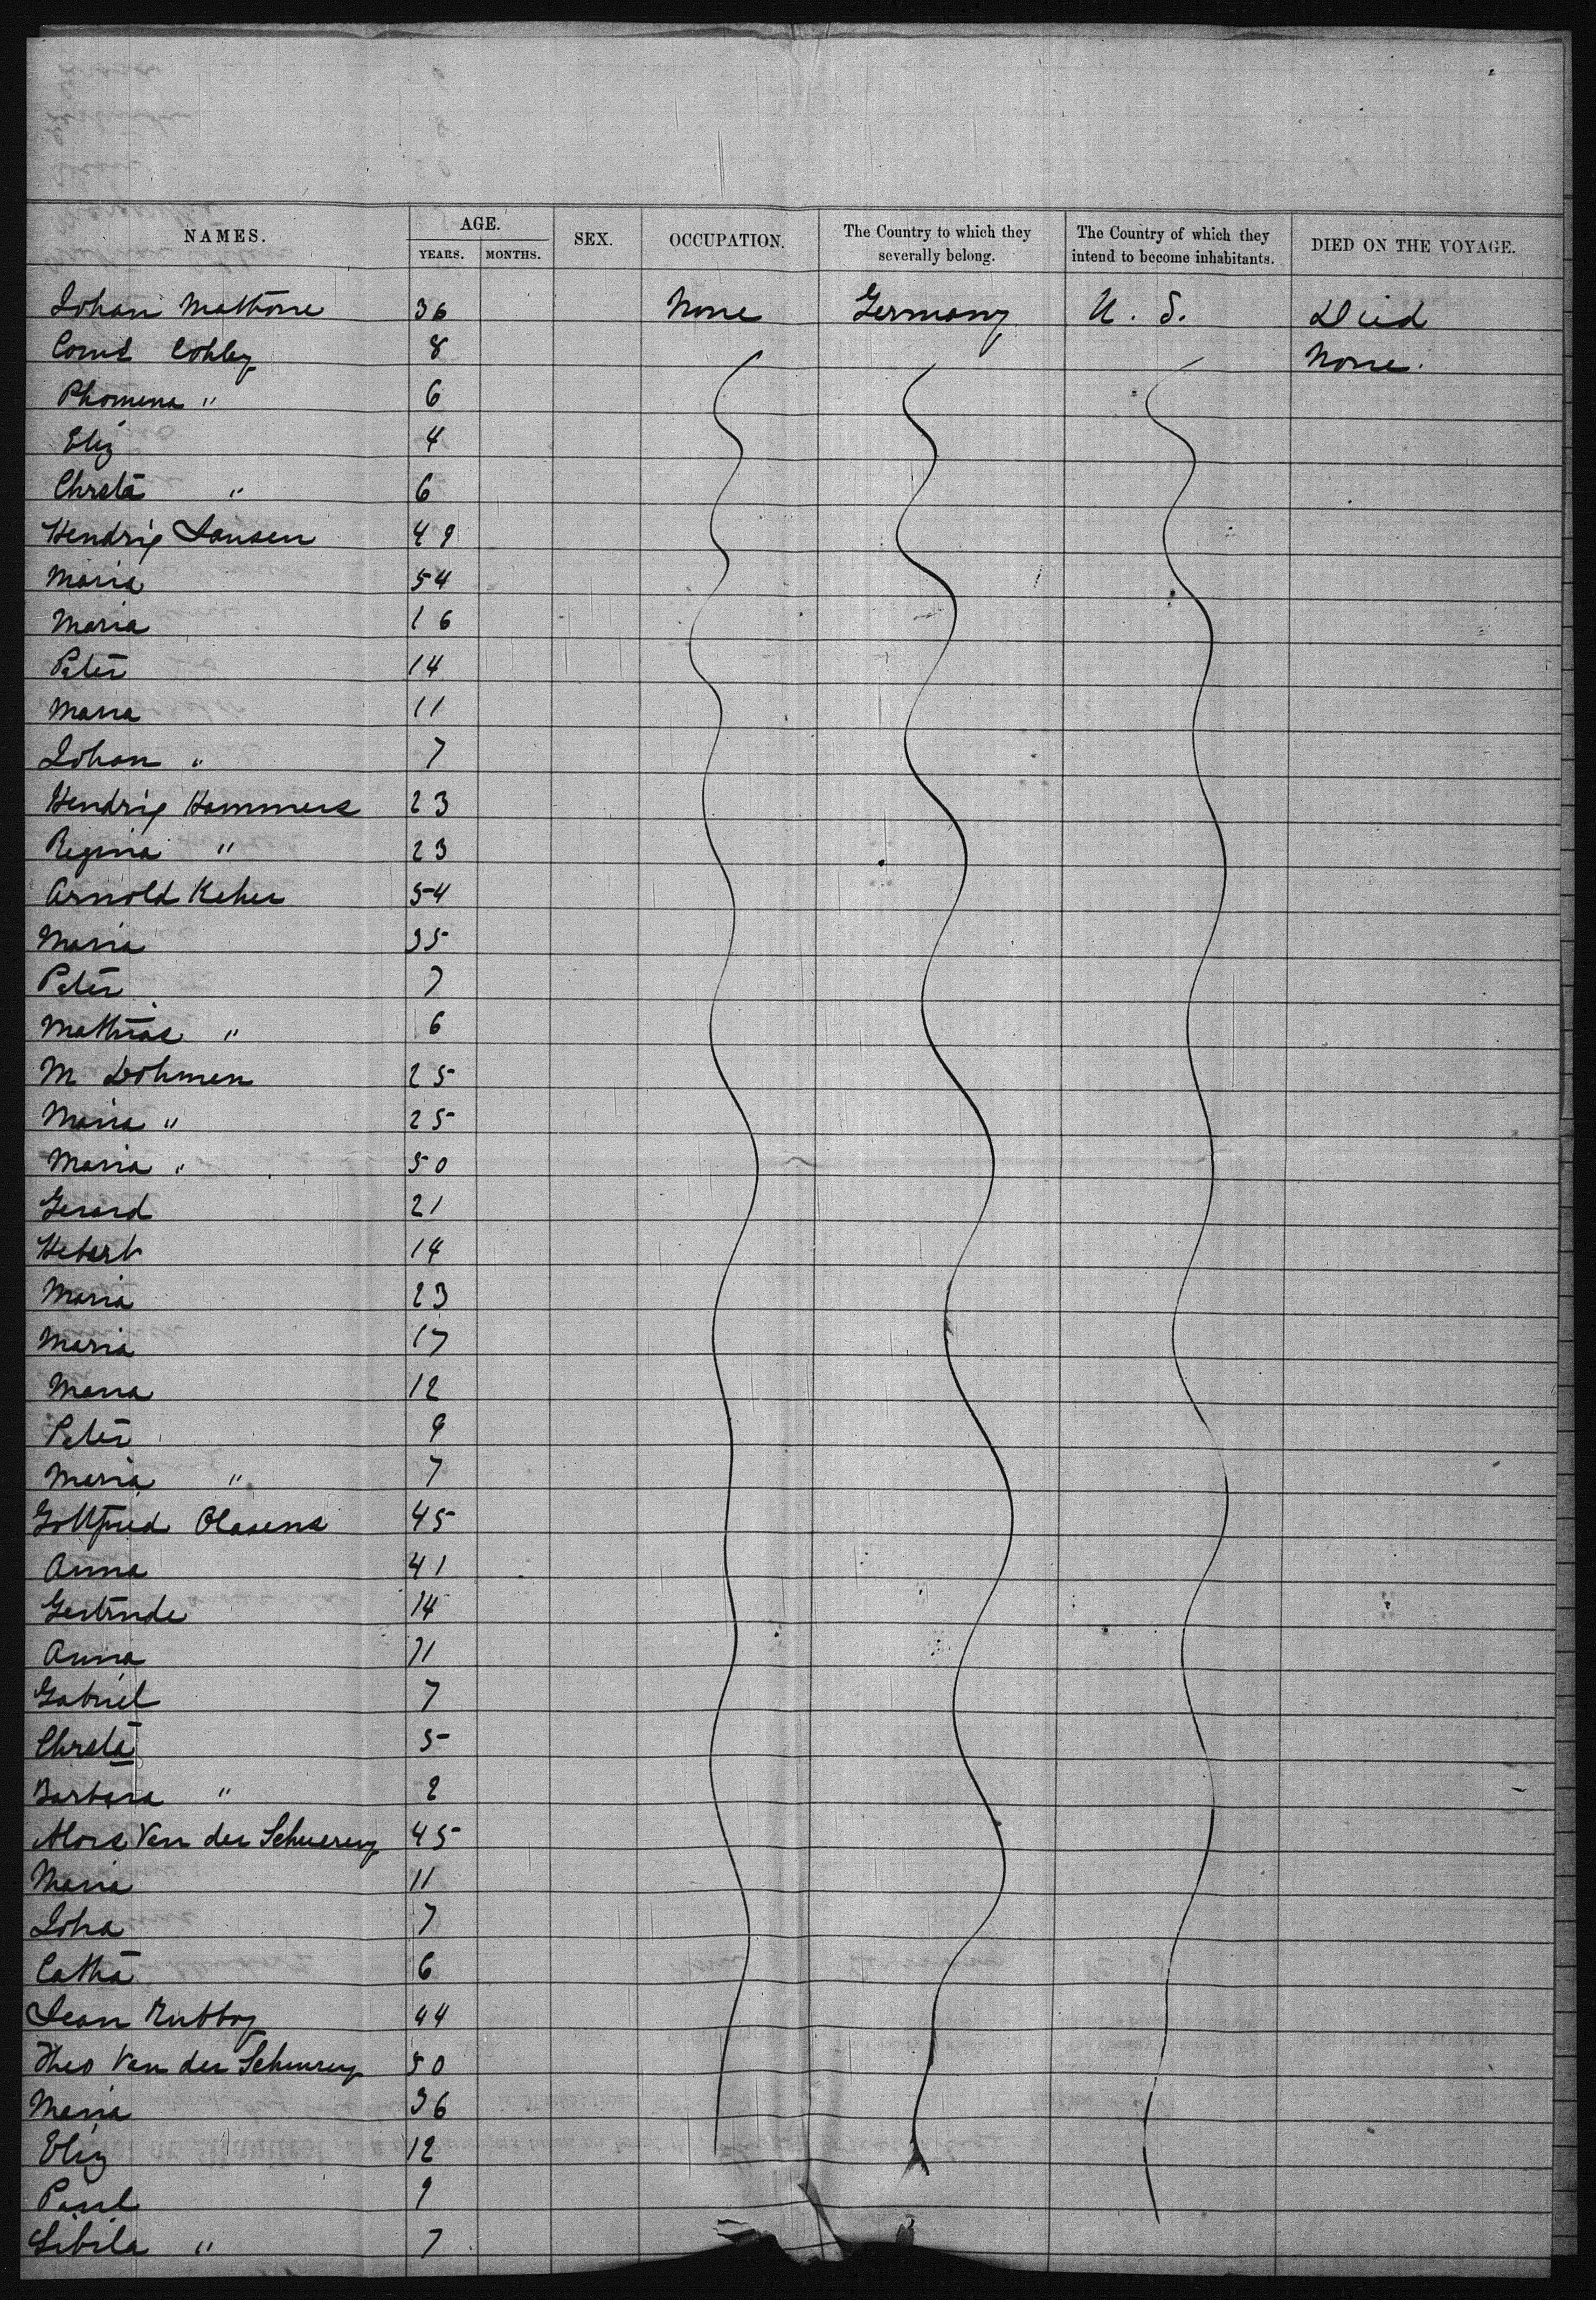 NAMES. AGE. SEX. OCCUPATION. The Country to which they severally belong. The Country of which they intend to become inhabitants. DIED ON THE VOYAGE.
YEARS. MONTHS.
Johan Mathone 36 None Germany U. S. Died
Corns Cohley 8 None.
Phomena " 6
Eliz 4
Christa " 6
Hendrig Jansen 49
Maria 54
Maria 16
Peter 14
Maria 11
Johan " 7
Hendrig Hammers 23
Regina " 23
Arnold Keher 54
Maria 35
Peter 7
Mathias " 6
M Dohmen 25
Maria " 25
Maria " 50
Gerard 21
Hebert 14
Maria 23
Maria 17
Maria 12
Peter 9
Maria " 7
Gottfried Clasens 45
Anna 41
Gertrude 14
Anna 11
Gabriel 7
Christa 5
Barbara " 2
Alois Van der Scheurey 45
Maria 11
Joha 7
Catha 6
Jean Rubboy 44
Theo Van der Scheurey 50
Maria 36
Eliz 12
Paul 9
Sibila " 7